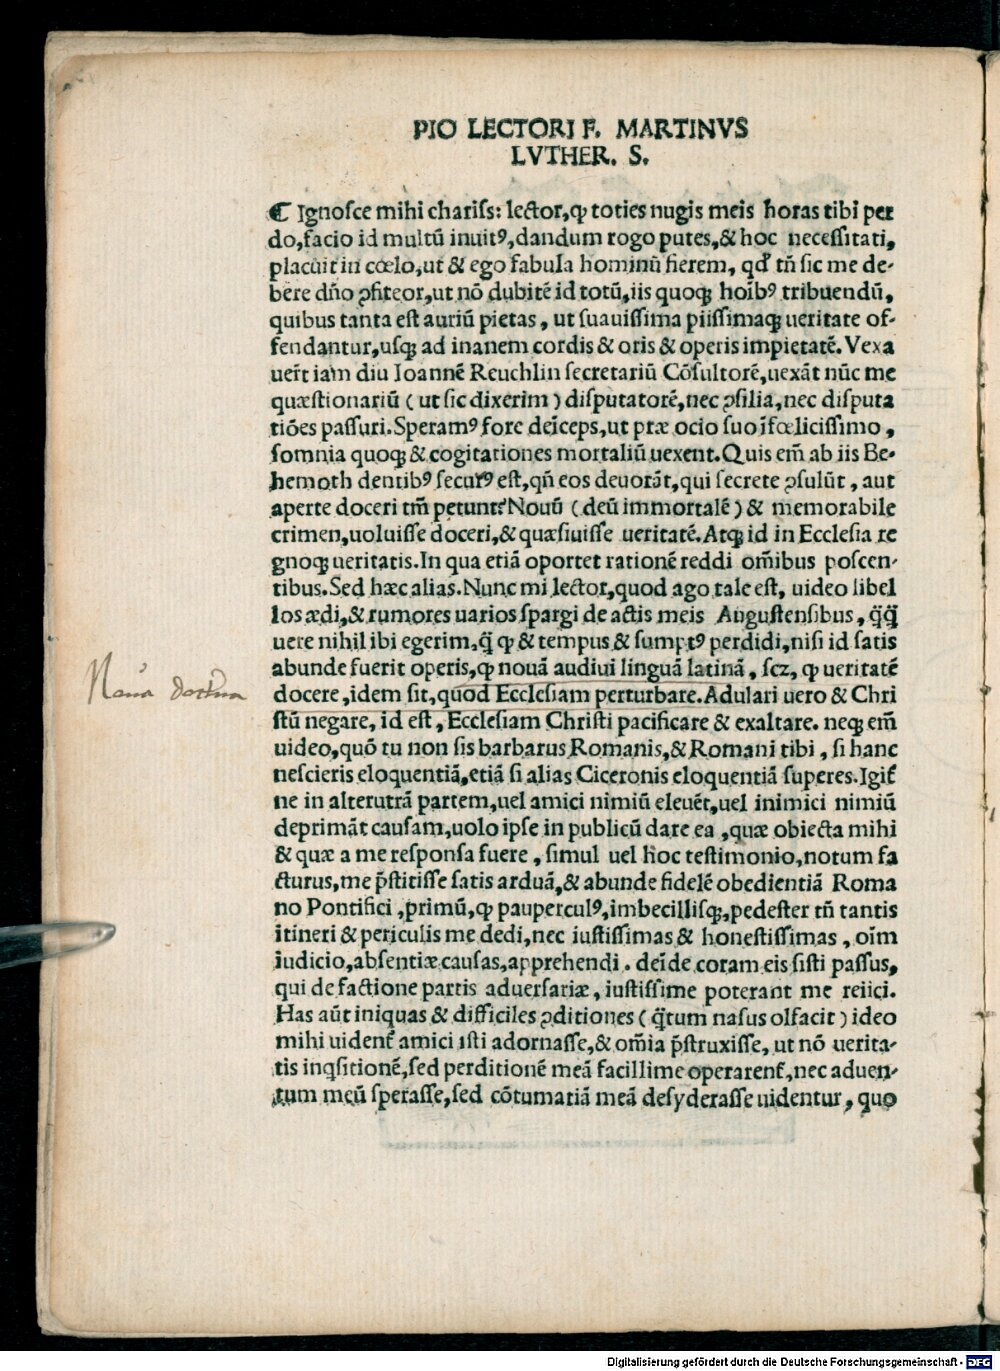 PIO LECTORI F. MARTINVS
LVTHER. S.
⸿ Ignoſce mihi chariſs: lector, ꝙ toties nugis meis horas tibi per
do, facio id multū inuitꝰ, dandum rogo putes, & hoc neceſſitati,
placuit in cœlo, ut & ego fabula hominū fierem, qď tñ ſic me de-
bere dño ꝓfiteor, ut nō dubitē id totū, iis quoqꝫ hoībꝰ tribuendū,
quibus tanta eſt auriū pietas, ut ſuauiſſima piiſſimaqꝫ ueritate of-
fendantur, uſqꝫ ad inanem cordis & oris & operis impietatē. Vexa
uerꝛt iam diu Ioannē Reuchlin ſecretariū Cōſultorē, uexāt nūc me
quæſtionariū ( ut ſic dixerim ) diſputatorē, nec ꝯſilia, nec diſputa
tiōes paſſuri. Speramꝰ fore deīceps, ut præ ocio ſuo īfœliciſſimo,
ſomnia quoqꝫ & cogitationes mortaliū uexent. Quis em̄ ab iis Be-
hemoth dentibꝰ ſecurꝰ eſt, qñ eos deuorāt, qui ſecrete ꝯſulūt, aut
aperte doceri tm̄ petunt? Nouū ( deū immortalē ) & memorabile
crimen, uoluiſſe doceri, & quæſiuiſſe ueritatē. Atqꝫ id in Eccleſia re
gnoqꝫ ueritatis. In qua etiā oportet rationē reddi om̄ibus poſcen-
tibus. Sed hæc alias. Nunc mi lector, quod ago tale eſt, uideo libel
los ædi, & rumores uarios ſpargi de actis meis Auguſtenſibus, q̄q̄
uere nihil ibi egerim, q̄ ꝙ & tempus & ſumptꝰ perdidi, niſi id ſatis
abunde fuerit operis, ꝙ nouā audiui linguā latinā, ſcꝫ, ꝙ ueritatē
Noua doctrina
docere, idem ſit, quod Eccleſiam perturbare. Adulari uero & Chri
ſtū negare, id eſt, Eccleſiam Chriſti pacificare & exaltare. neqꝫ em̄
uideo, quō tu non ſis barbarus Romanis, & Romani tibi, ſi hanc
neſcieris eloquentiā, etiā ſi alias Ciceronis eloquentiā ſuperes. Igiť
ne in alterutrā partem, uel amici nimiū eleuēt, uel inimici nimiū
deprimāt cauſam, uolo ipſe in publicū dare ea, quæ obiecta mihi
& quæ a me reſponſa fuere, ſimul uel hoc teſtimonio, notum fa
cturus, me p̄ſtitiſſe ſatis arduā, & abunde fidelē obedientiā Roma
no Pontifici, primū, ꝙ pauperculꝰ, imbecilliſqꝫ, pedeſter tñ tantis
itineri & periculis me dedi, nec iuſtiſſimas & honeſtiſſimas, oīm
iudicio, abſentiæ cauſas, apprehendi. deīde coram eis ſiſti paſſus,
qui de factione partis aduerſariæ, iuſtiſſime poterant me reiici.
Has aūt iniquas & difficiles ꝯditiones ( q̄tum naſus olfacit ) ideo
mihi uidenť amici iſti adornaſſe, & om̄ia p̄ſtruxiſſe, ut nō uerita-
tis inqſitionē, ſed perditionē meā facillime operarenť, nec aduen-
tum meū ſperaſſe, ſed cōtumatiā meā deſyderaſſe uidentur, quo
Digitalisierung gefördert durch die Deutsche Forschungsgemeinschaft - DFG